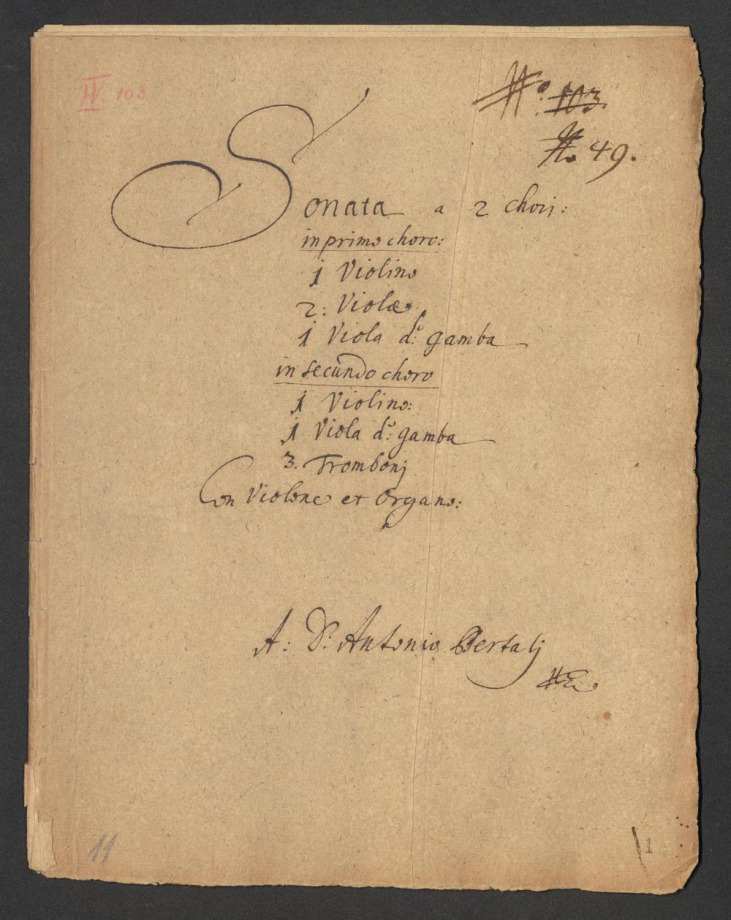 IV 103
No: 103
No 49.
Sonata a 2 chori:
in primo choro:
1 Violino
2: Violæ
1 Viola d: gamba
in secundo choro
1 Violino:
1 Viola d: gamba
3. Trombonj
Con Violone et Organo:
A: D: Antonio Bertalj
11
1